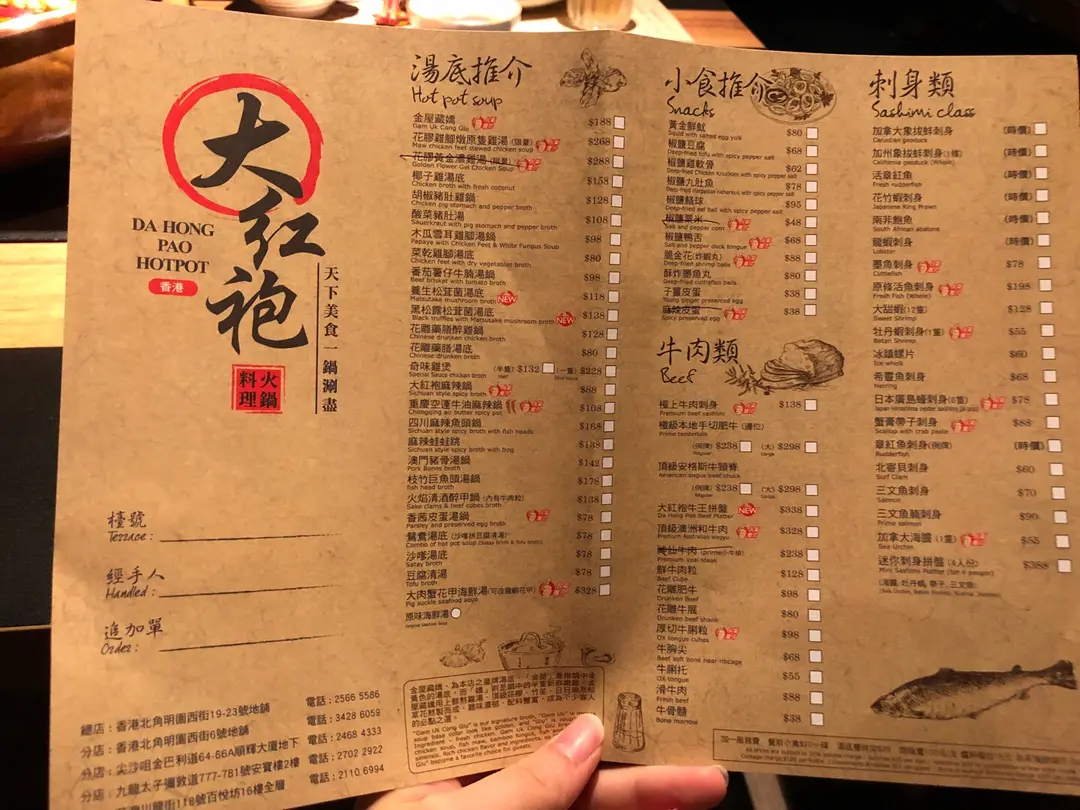 大红袍
DA HONG
PAO
HOTPOT
香港
天下美食一鍋涮盡
火鍋
料理
檯號
Terrace :
經手人
Handled :
追加單
Order :
總店：香港北角明園西街19-23號地舖 電話：2566 5586
分店：香港北角明園西街6號地舖 電話：3428 6059
分店：尖沙咀金巴利道64-66A順輝大廈地下 電話：2468 4333
分店：九龍太子彌敦道777-781號安寶樓2樓 電話：2702 2922
118號百悅坊16樓全層 電話：2110 6994
湯底推介
Hot pot soup
金屋藏嬌 $188
Gam Uk Cong Giu
花膠雞腳燉原隻雞湯 (限量) $268
Maw chicken feet stewed chicken soup
花膠黃金濃雞湯 (限量) $288
Golden Flower Gel Chicken Soup
椰子雞湯底 $158
Chicken broth with fresh coconut
胡椒豬肚雞鍋 $128
Chicken pig stomach and pepper broth
酸菜豬肚湯 $108
Sauerkraut with pig stomach and pepper broth
木瓜雪耳雞腳湯鍋 $98
Papaya with Chicken Feet & White Fungus Soup
菜乾雞腳湯底 $80
Chicken feet with dry vegetable broth
番茄薯仔牛腩湯鍋 $98
Beef brisket with tomato broth
養生松茸菌湯底 NEW $118
Matsutake mushroom broth
黑松露松茸菌湯底 NEW $138
Black truffles with Matsutake mushroom broth
花雕藥膳醉雞鍋 $128
Chinese drunken chicken broth
花雕藥膳湯底 $80
Chinese drunken broth
奇味雞煲 (半隻) $132 (一隻) $228
Special Sauce chicken broth
大紅袍麻辣鍋 $88
Sichuan style spicy broth
重慶空運牛油麻辣鍋 $108
Chongqing air butter spicy pot
四川麻辣魚頭鍋 $168
Sichuan style spicy broth with fish heads
麻辣蛙蛙跳 $138
Sichuan style spicy broth with frog
澳門豬骨湯鍋 $142
Pork Bones broth
枝竹巨魚頭湯鍋 $178
fish head broth
火焰清酒醉甲鍋 (內有牛肉粒) $138
Sake clams & beef cubes broth
香茜皮蛋湯鍋 $78
Parsley and preserved egg broth
鴛鴦湯底 (沙嗲拼豆腐清湯) $78
Combo of hot pot soup
沙嗲湯底 $78
Satay broth
豆腐清湯 $78
Tofu broth
大肉蟹花甲海鮮湯 $328
Pig suckle seafood soup
原味海鮮湯
小食推介
Snacks
黃金鮮魷 $80
Squid with salted egg yolk
椒鹽豆腐 $68
Deep-fried tofu with spicy pepper salt
椒鹽雞軟骨 $62
Deep-fried Chicken Knuckles with spicy pepper salt
椒鹽九肚魚 $78
椒鹽鱔球 $95
Deep-fried eel ball with spicy pepper salt
椒鹽粟米 $48
Salt and pepper corn
椒鹽鴨舌 $68
Salt and pepper duck tongue
脆金花 (炸蝦丸) $88
Deep-fried shrimp balls
酥炸墨魚丸 $80
Deep-fried cuttlefish balls
子薑皮蛋 $38
Young ginger preserved egg
麻辣皮蛋 $38
Spicy preserved egg
牛肉類
Beef
極上牛肉刺身 $138
Premium beef sashimi
極級本地手切肥牛 (邊位)
Prime tenderloin
(例牌) $238 (大) $298
頂級安格斯牛頸脊
American angus beef chuck
(例牌) $238 (大) $298
大紅袍牛王拼盤 NEW $338
Da Hong Pao Beef Platter
頂級澳洲和牛肉 $328
Premium Australian wagyu
$238
Premium Veal steak
鮮牛肉粒 $128
Beef Cube
花雕肥牛 $98
Drunken Beef
花雕牛展 $80
Drunken beef shank
厚切牛脷粒 $98
OX tongue cubes
牛胸尖 $68
Beef soft bone near ribcage
牛脷托 $55
OX tongue
滑牛肉 $88
Fresh beef
牛骨髓 $38
Bone marrow
刺身類
Sashimi class
加拿大象拔蚌刺身 (時價)
Canadian geoduck
加州象拔蚌刺身 (1條) (時價)
California geoduck (Whole)
活章紅魚 (時價)
Fresh rudderfish
花竹蝦刺身 (時價)
Japanese King Prawn
南非鮑魚 (時價)
South African abalone
龍蝦刺身 (時價)
Lobster
墨魚刺身 $78
Cuttlefish
原條活魚刺身 $198
Fresh Fish (Whole)
大甜蝦 (12隻) $128
Sweet Shrimp
牡丹蝦刺身 (1隻) $55
Botan Shrimp
冰鎮螺片 $60
Ice whelk
希靈魚刺身 $68
Herring
日本廣島蠔刺身 (6隻) $78
蟹膏帶子刺身 $88
Scallop with crab paste
章紅魚刺身 (例牌) (時價)
Rudderfish
北寄貝刺身 $60
Surf Clam
三文魚刺身 $70
Salmon
三文魚腩刺身 $90
Prime salmon
加拿大海膽 (1隻) $55
Sea Urchin
迷你刺身拼盤 (4人份) $388
Mini Sashimi Platter (for 4 people)
(海膽, 牡丹蝦, 帶子, 三文魚)